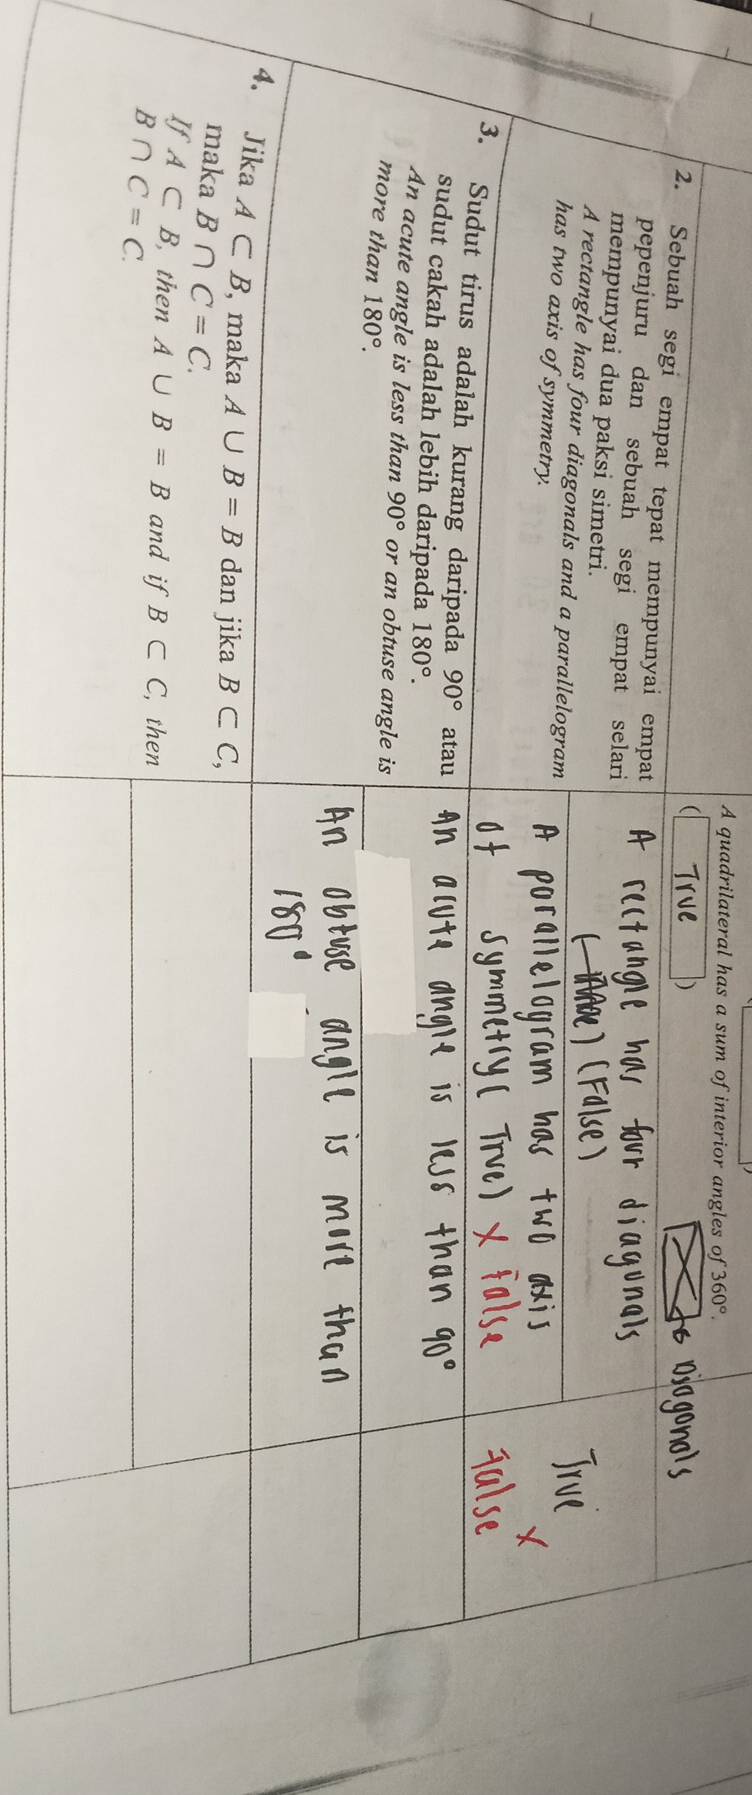 A quadrilateral has a sum of interior angles of 360°.
( True )
Diagonals
2. Sebuah segi empat tepat mempunyai empat
pepenjuru dan sebuah segi empat selari
mempunyai dua paksi simetri.
A rectangle has four diagonals and a parallelogram
has two axis of symmetry.
A rectangle has four diagonals
(False)
A parallelogram has two axis
of symmetry( True) x false
True x
false
3. Sudut tirus adalah kurang daripada 90° atau
sudut cakah adalah lebih daripada 180°.
An acute angle is less than 90° or an obtuse angle is
more than 180°.
An acute angle is less than 90°
An obtuse angle is more than
180°
4. Jika A ⊂ B, maka A ∪ B = B dan jika B ⊂ C,
maka B ∩ C = C.
If A ⊂ B, then A ∪ B = B and if B ⊂ C, then
B ∩ C = C.